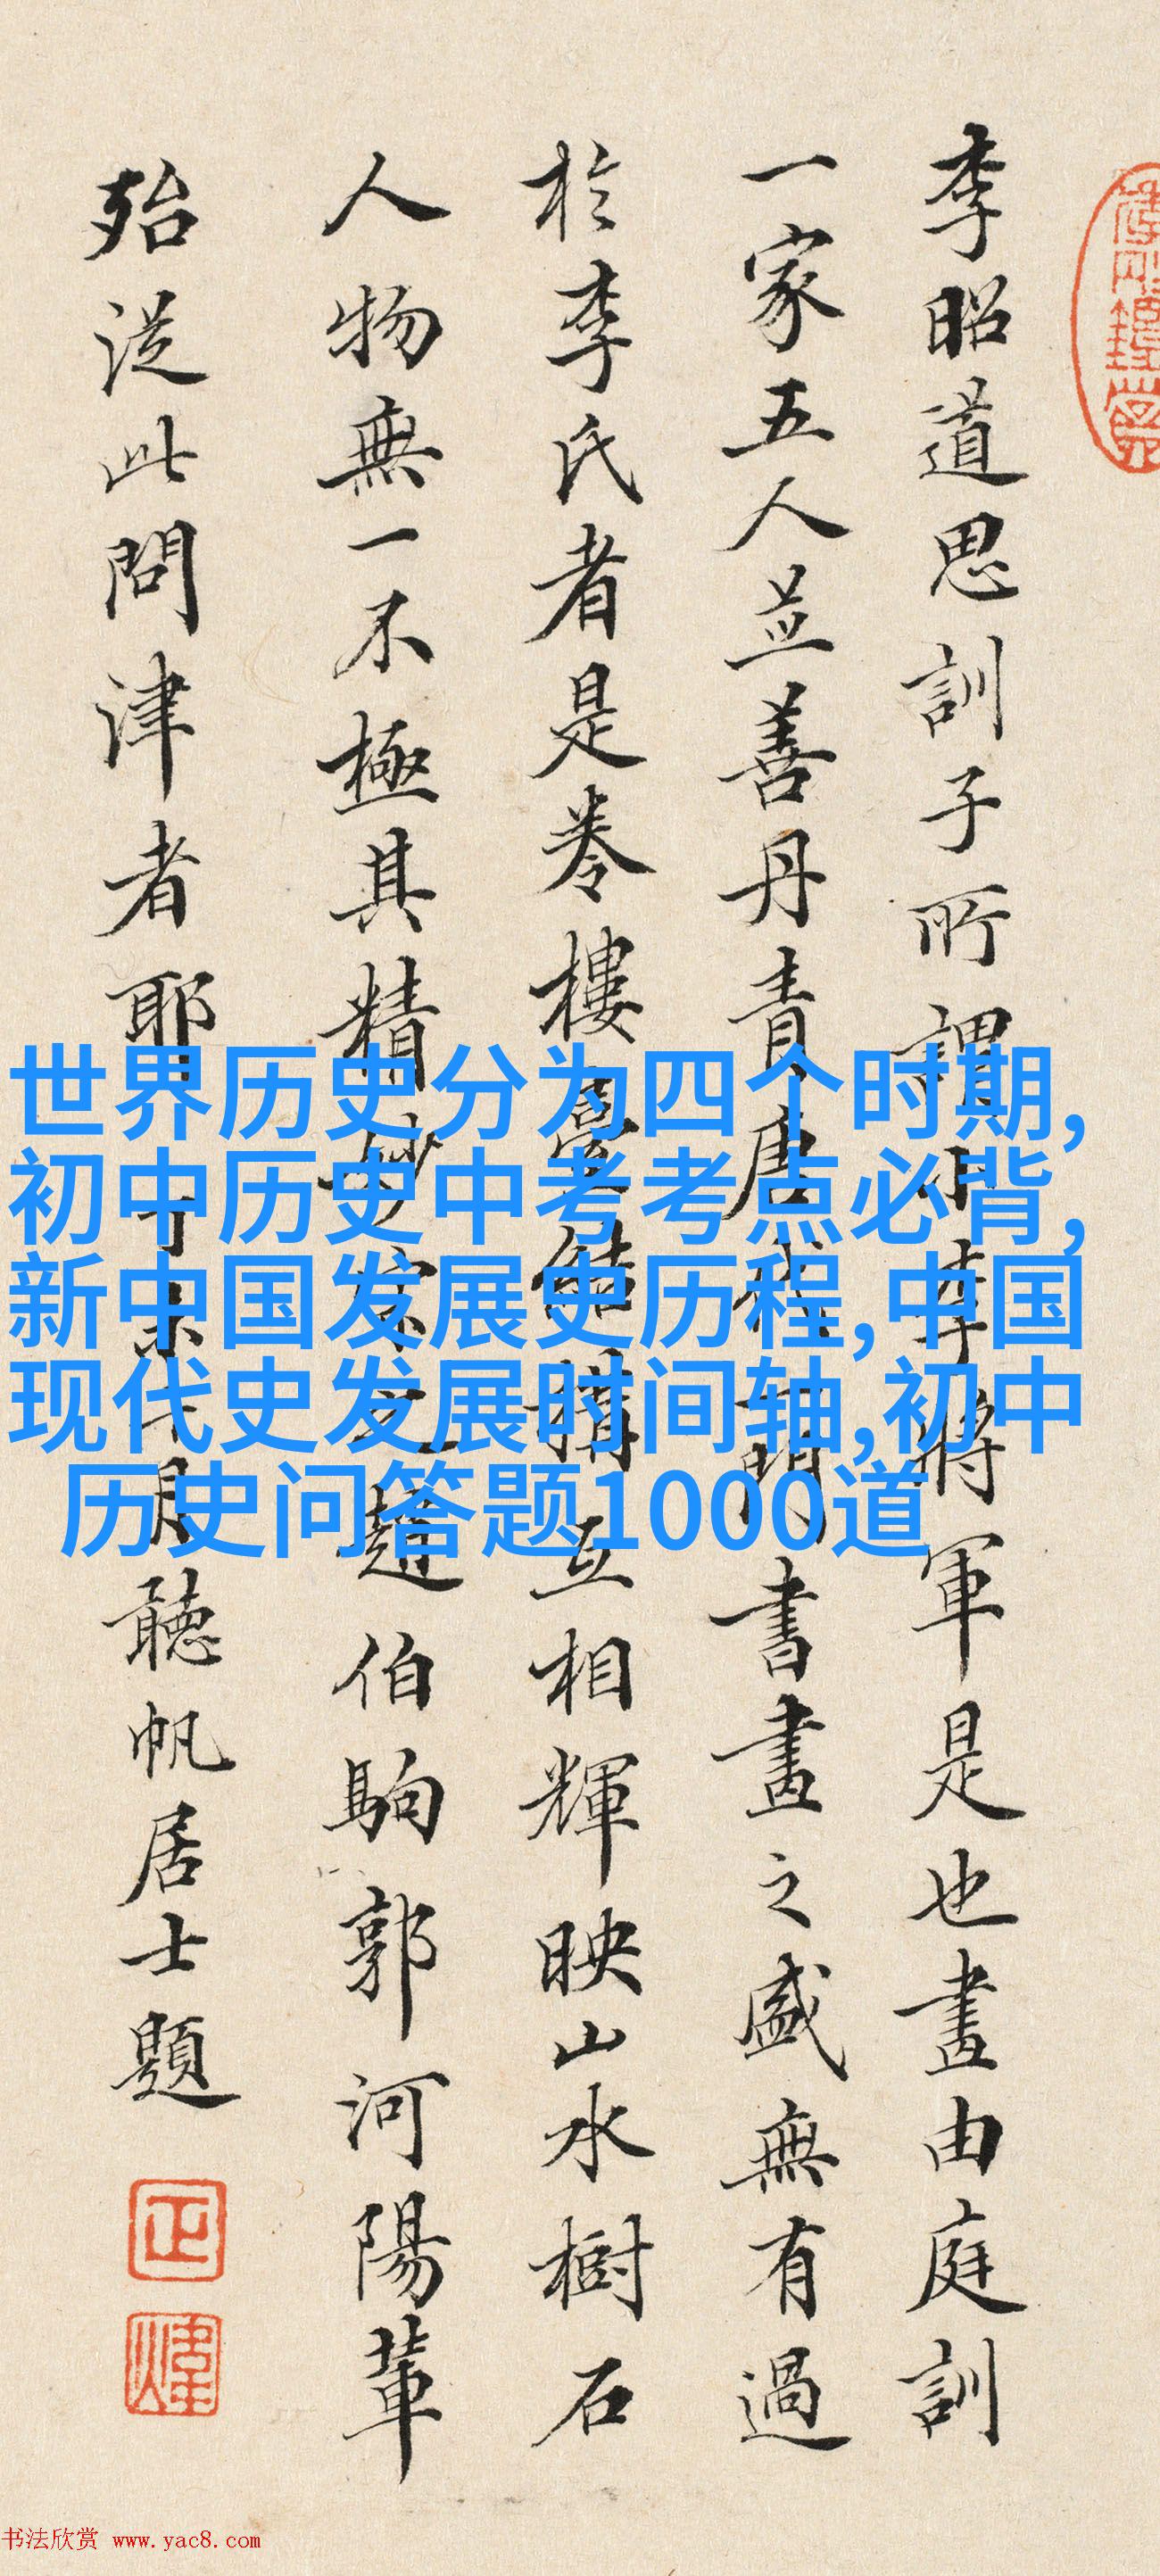 李昭道思訓子所謂小李將軍是也畫由庭訓
一家五人並善丹青唐代門書畫之盛無有過
於李氏者是卷樓臺結構互相輝映山水樹石
人物無一不極其精妙宋之趙伯駒郭河陽輩
殆從此問津者耶丁未十月聽帆居士題
正
煒
世界历史分为四个时期,
初中历史中考考点必背,
新中国发展史历程,中国
现代史发展时间轴,初中
历史问答题1000道
书法欣赏 www.yac8.com